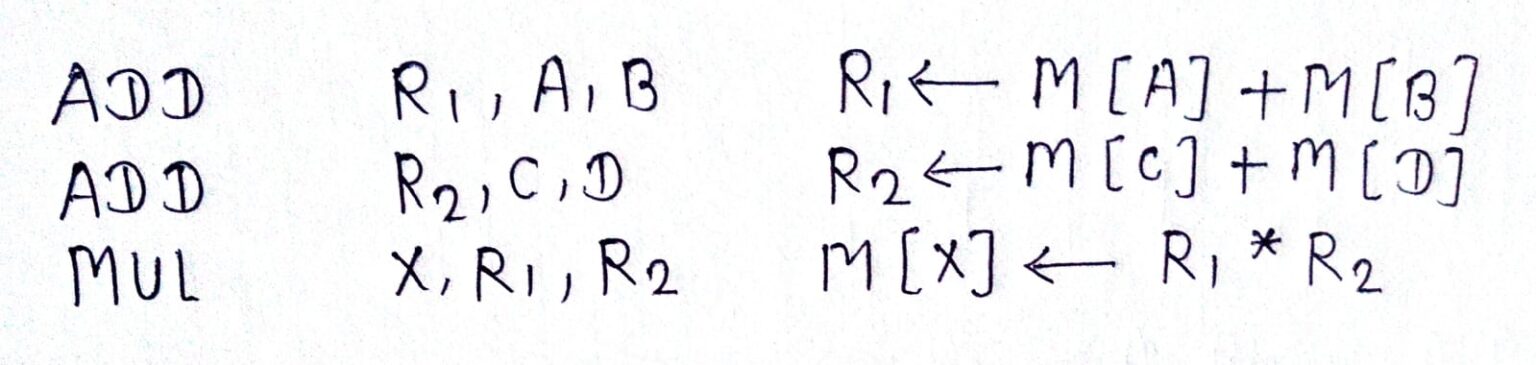 ADD R1, A, B R1 ← M[A] + M[B]
ADD R2, C, D R2 ← M[C] + M[D]
MUL X, R1, R2 M[X] ← R1 * R2